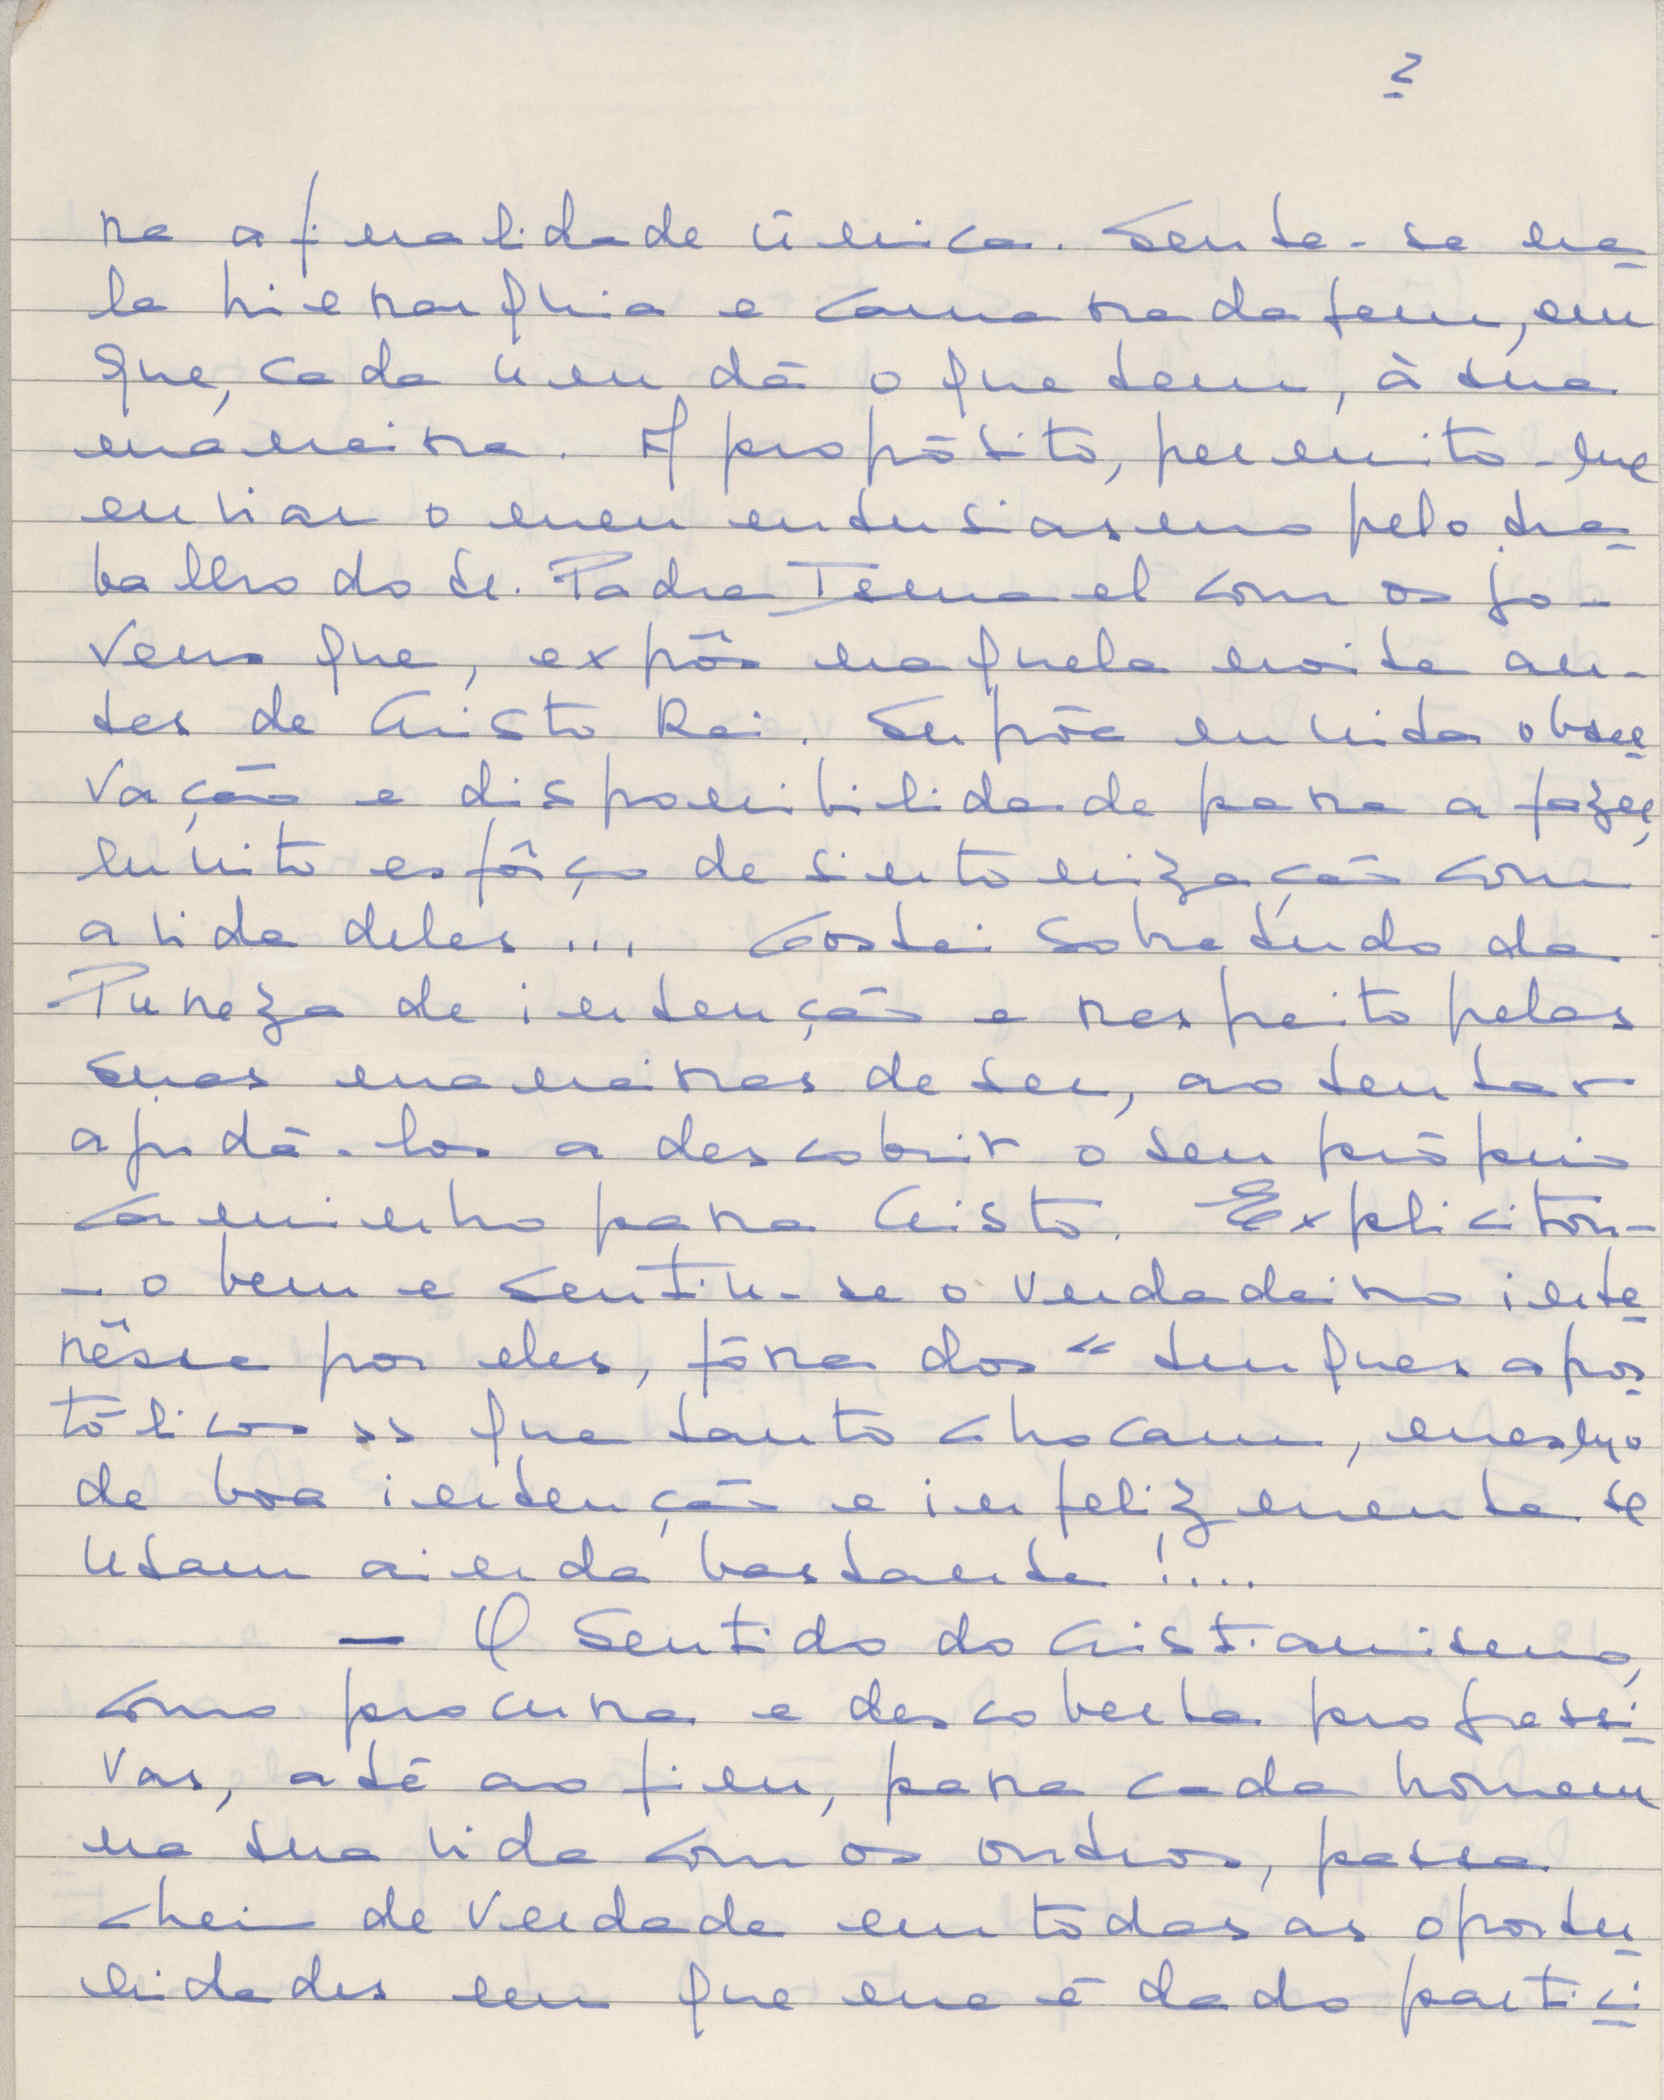 2
ra a finalidade única. Sente-se ne
la hierarquia e camaradagem, em
que, cada um dá o que tem, à sua
maneira. A propósito, permito-me
enviar o meu entusiasmo pelo tra
balho do Sr. Padre Ismael com os jo-
vens que, expôs naquela noite an-
tes de Cristo Rei. Supõe muita obser
vação e disponibilidade para a fazer,
muito esfôrço de sintonização com
a vida deles... Gostei sobretudo da
Pureza de intenção e respeito pelas
suas maneiras de ser, ao tentar
ajudá-los a descobrir o seu próprio
caminho para Cristo. Explicitou-
-o bem e sentiu-se o verdadeiro inte
rêsse por eles, fóra dos "truques apos
tólicos" que tanto chocam, mesmo
de boa intenção e infelizmente se
usam ainda bastante!....
— O Sentido do Cristianismo,
como procura e descoberta progressi
vas, até ao fim, para cada homem
na sua vida com os outros, passa
cheio de verdade em todas as oportu
nidades em que me é dado partici